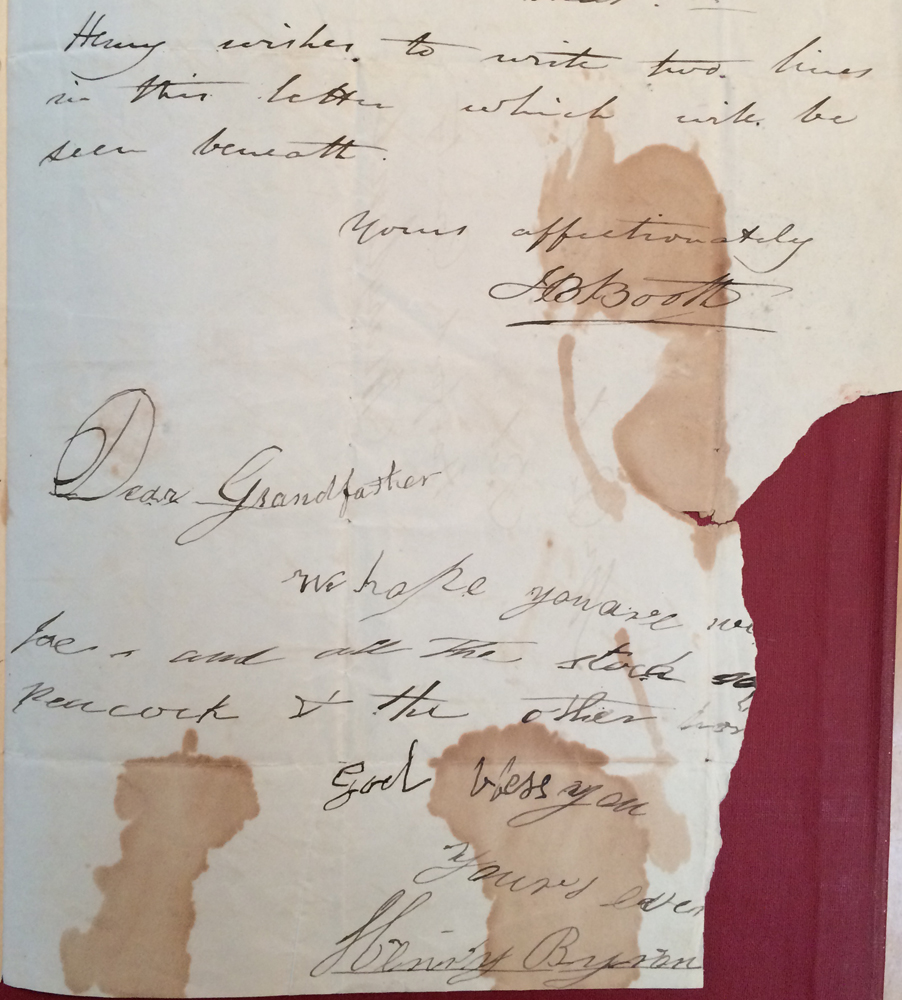 Henry wishes to write two lines
in this letter which will be
seen beneath.
Yours affectionately
JBBooth
Dear Grandfather
we hope you are
Joe and all the stock
Peacock & the other
God bless you
Yours ever
Henry Byron